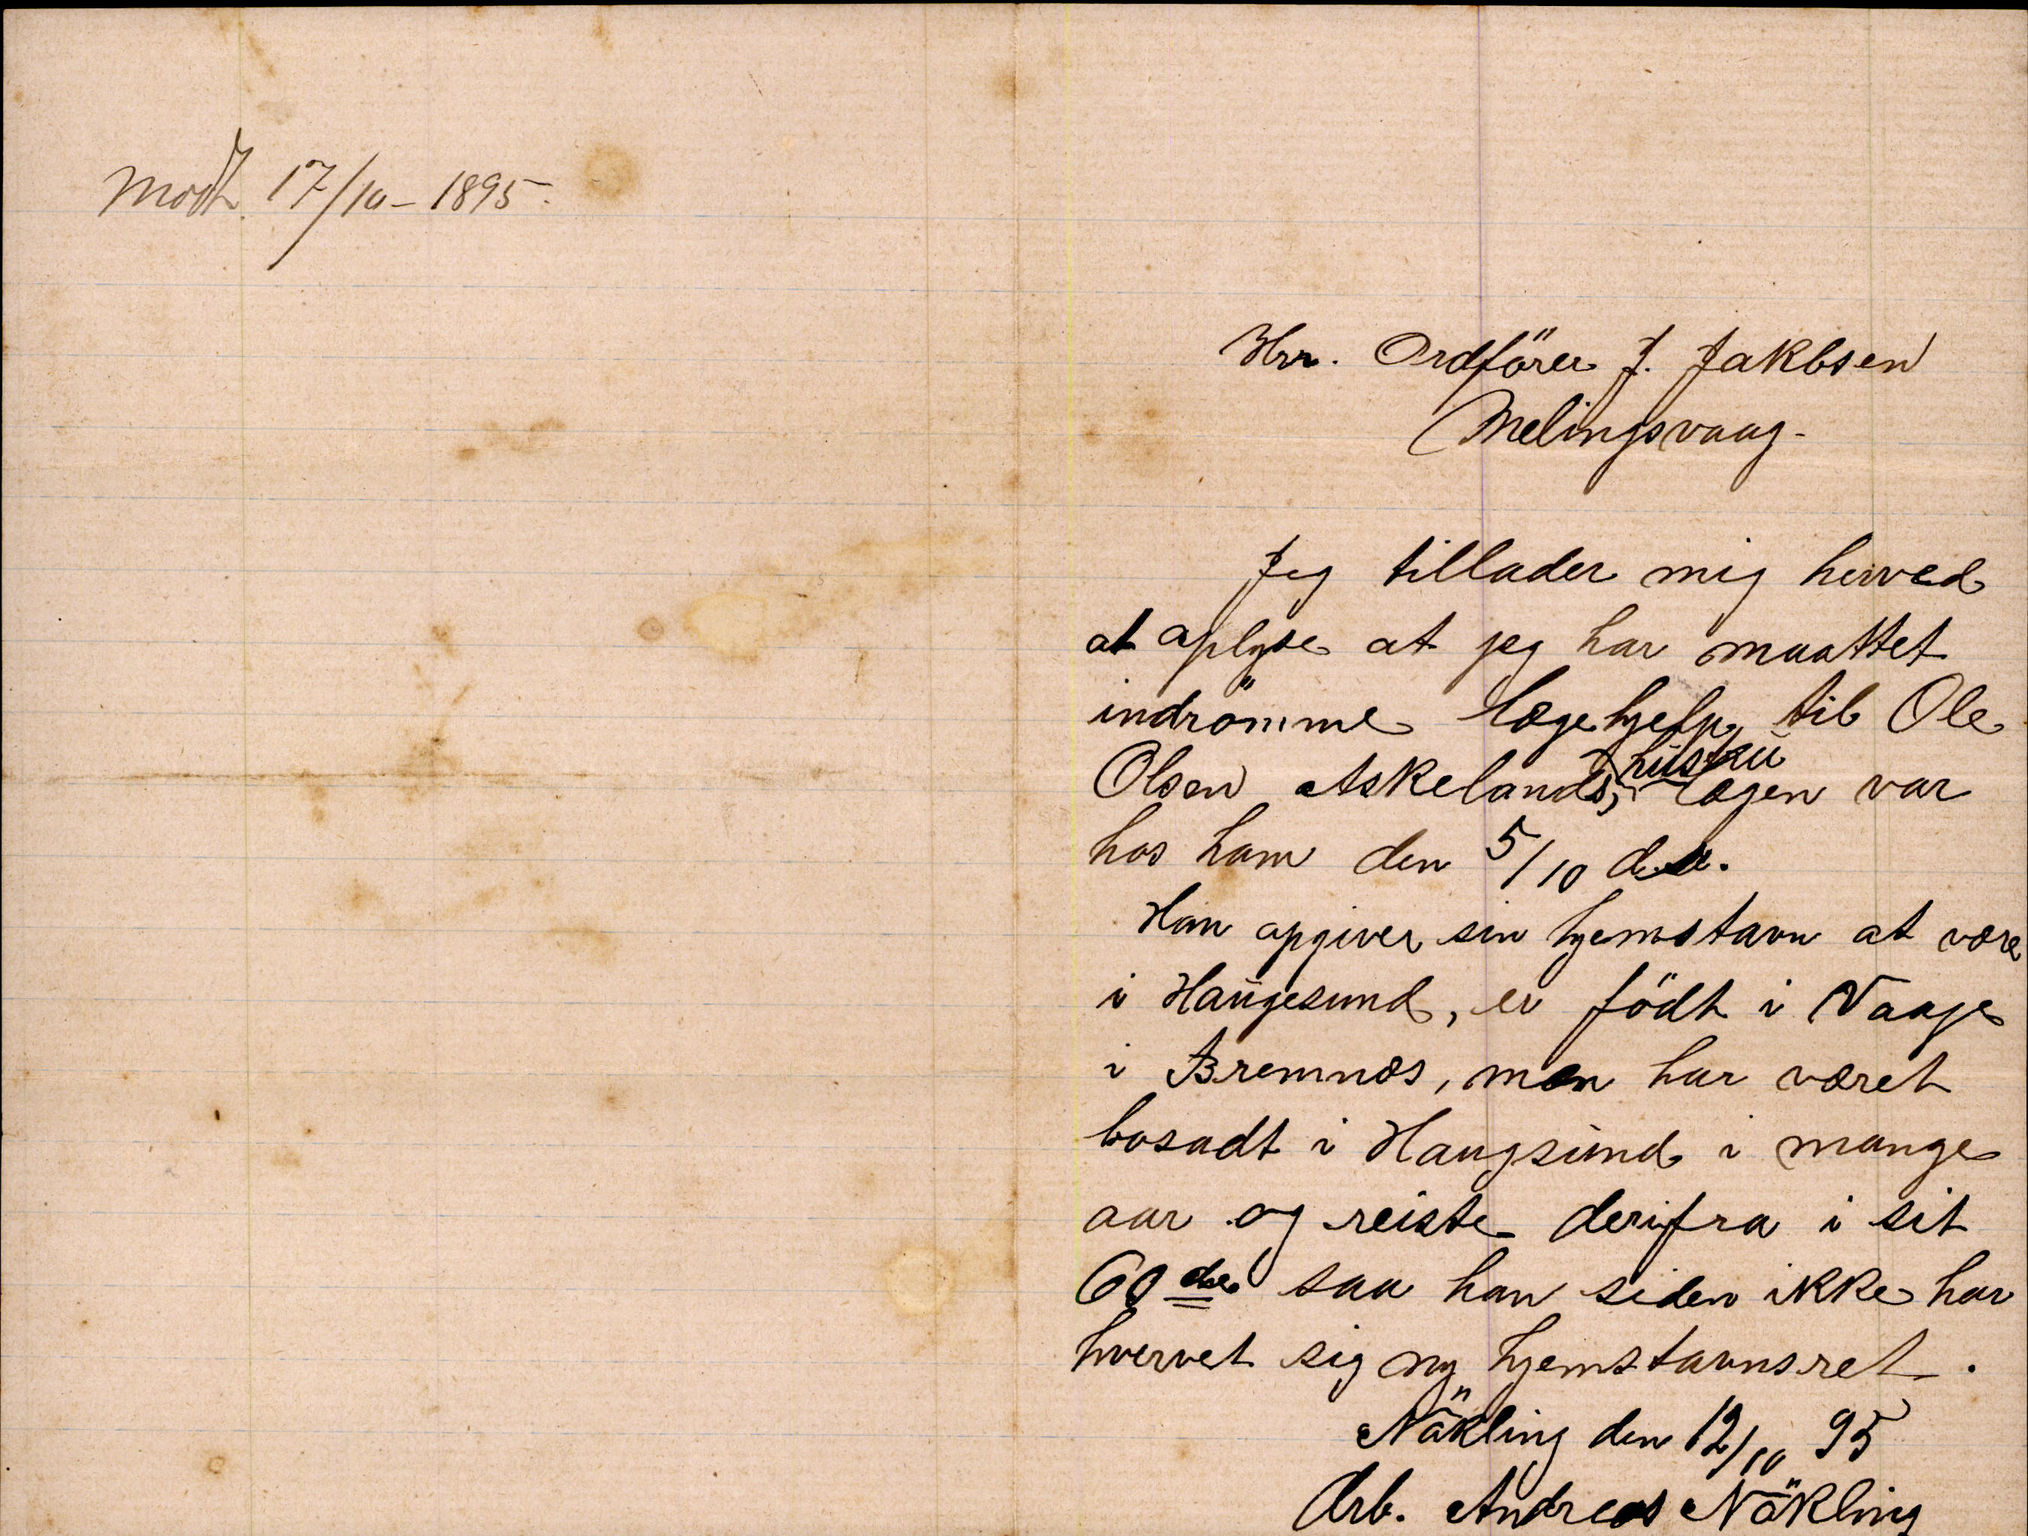 Modt. 17/10 - 1895.
Hrr. Ordförer J. Jakbsen
Melingsvaag.
Jeg tillader mig herved
at oplyse at jeg har maattet
indrömme lægehjelp til Ole
Olsen Askelands hustru lægen var
hos ham den 5/10 d.a.
Han opgiver sin hjemstavn at være
i Haugesund, er födt i Vaage
i Bremnæs, men har været
bosadt i Haugsund i mange
aar og reiste derifra i sit
60de saa han siden ikke har
hvervet sig ny hjemstavnsret.
Näkling den 12/10 95
Arb. Andreas Näkling